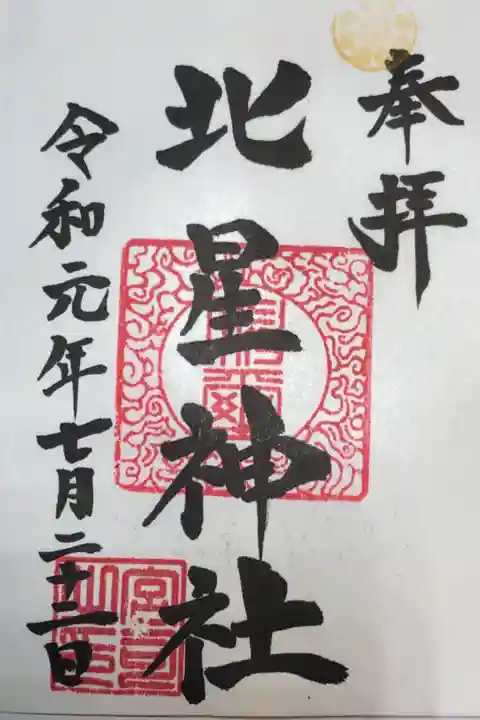 奉拝
北星神社
令和元年七月二十三日